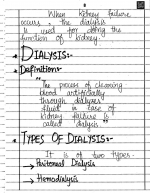 When kidney failure
occurs, the dialysis
is used for doing the
function of kidney.
DIALYSIS:-
Definition:-
"The process of cleansing
blood artificially
through dialyzer
fluid in case of
kidney failure is
called dialysis"
TYPES OF DIALYSIS:-
It is of two types.
Peritoneal Dialysis
Hemodialysis